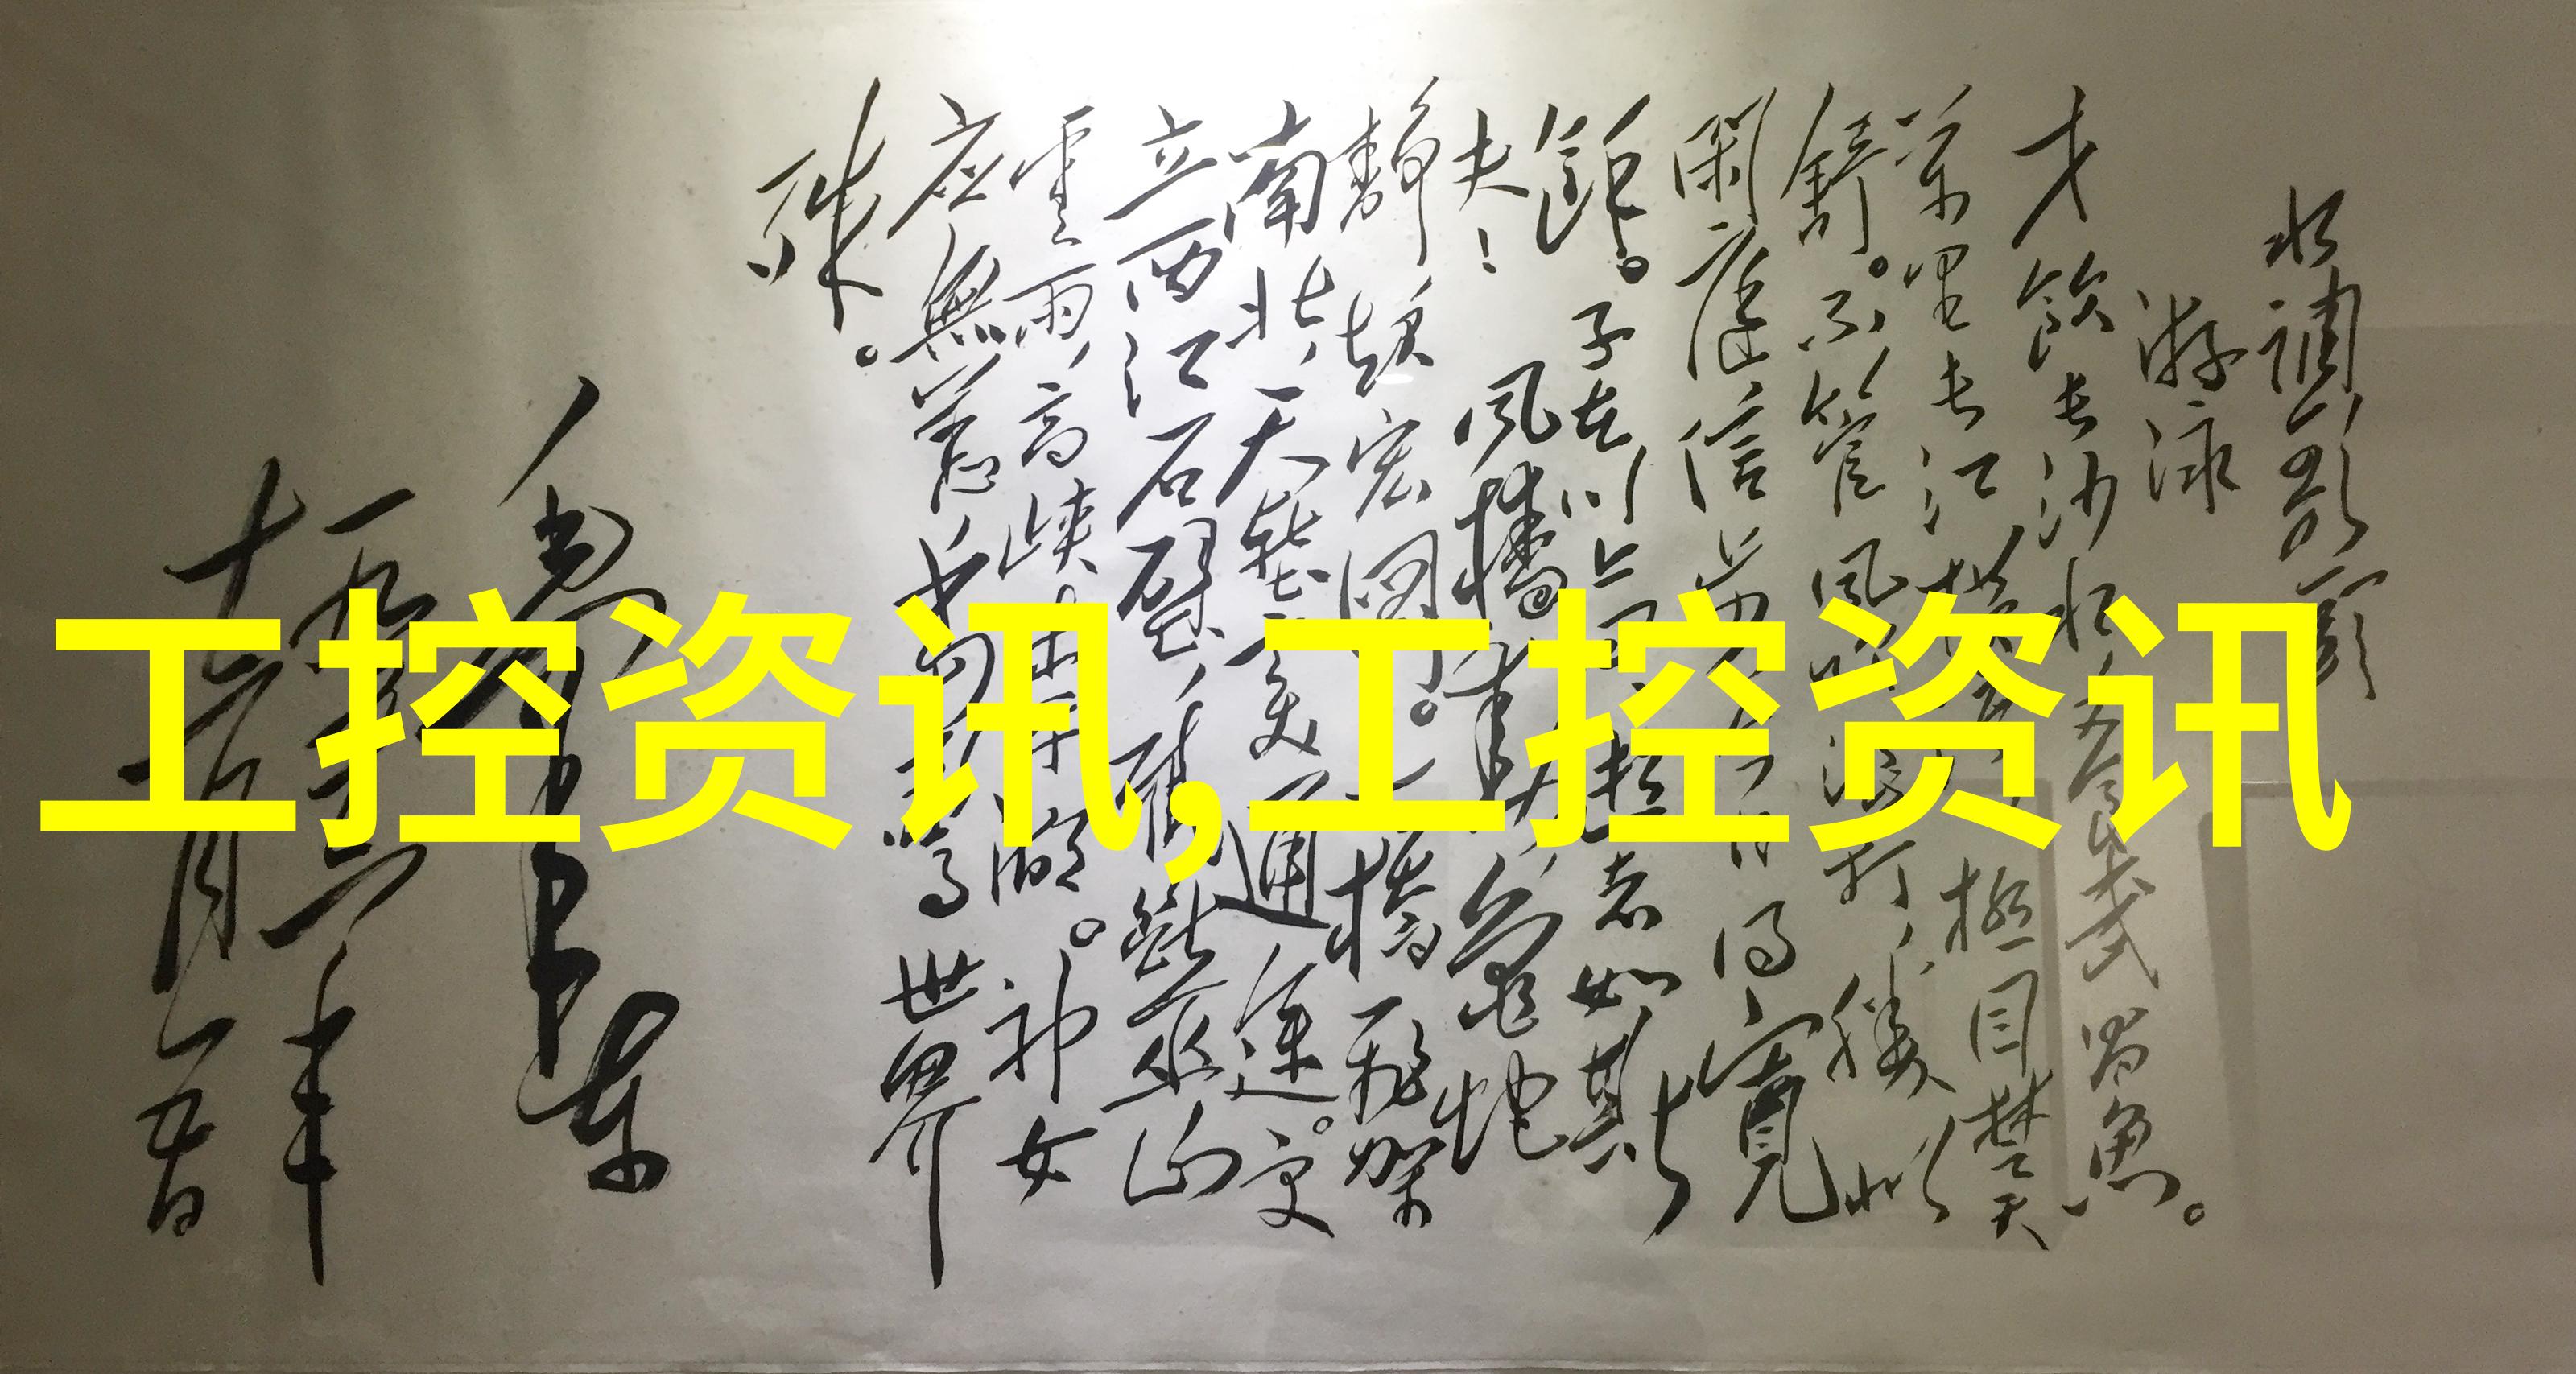 水调歌头
游泳
才饮长沙水,又食武昌鱼。
万里长江横渡,极目楚天
舒。不管风吹浪打,胜似
闲庭信步,今日得宽
馀。子在川上曰:逝者如斯
夫! 风樯动,龟蛇
静,起宏图。一桥飞架
南北,天堑变通途。更
立西江石壁,截断巫山
云雨,高峡出平湖。神女
应無恙,当惊世界
殊。
毛泽东
一九五六年
十二月五日
工控资讯,工控资讯